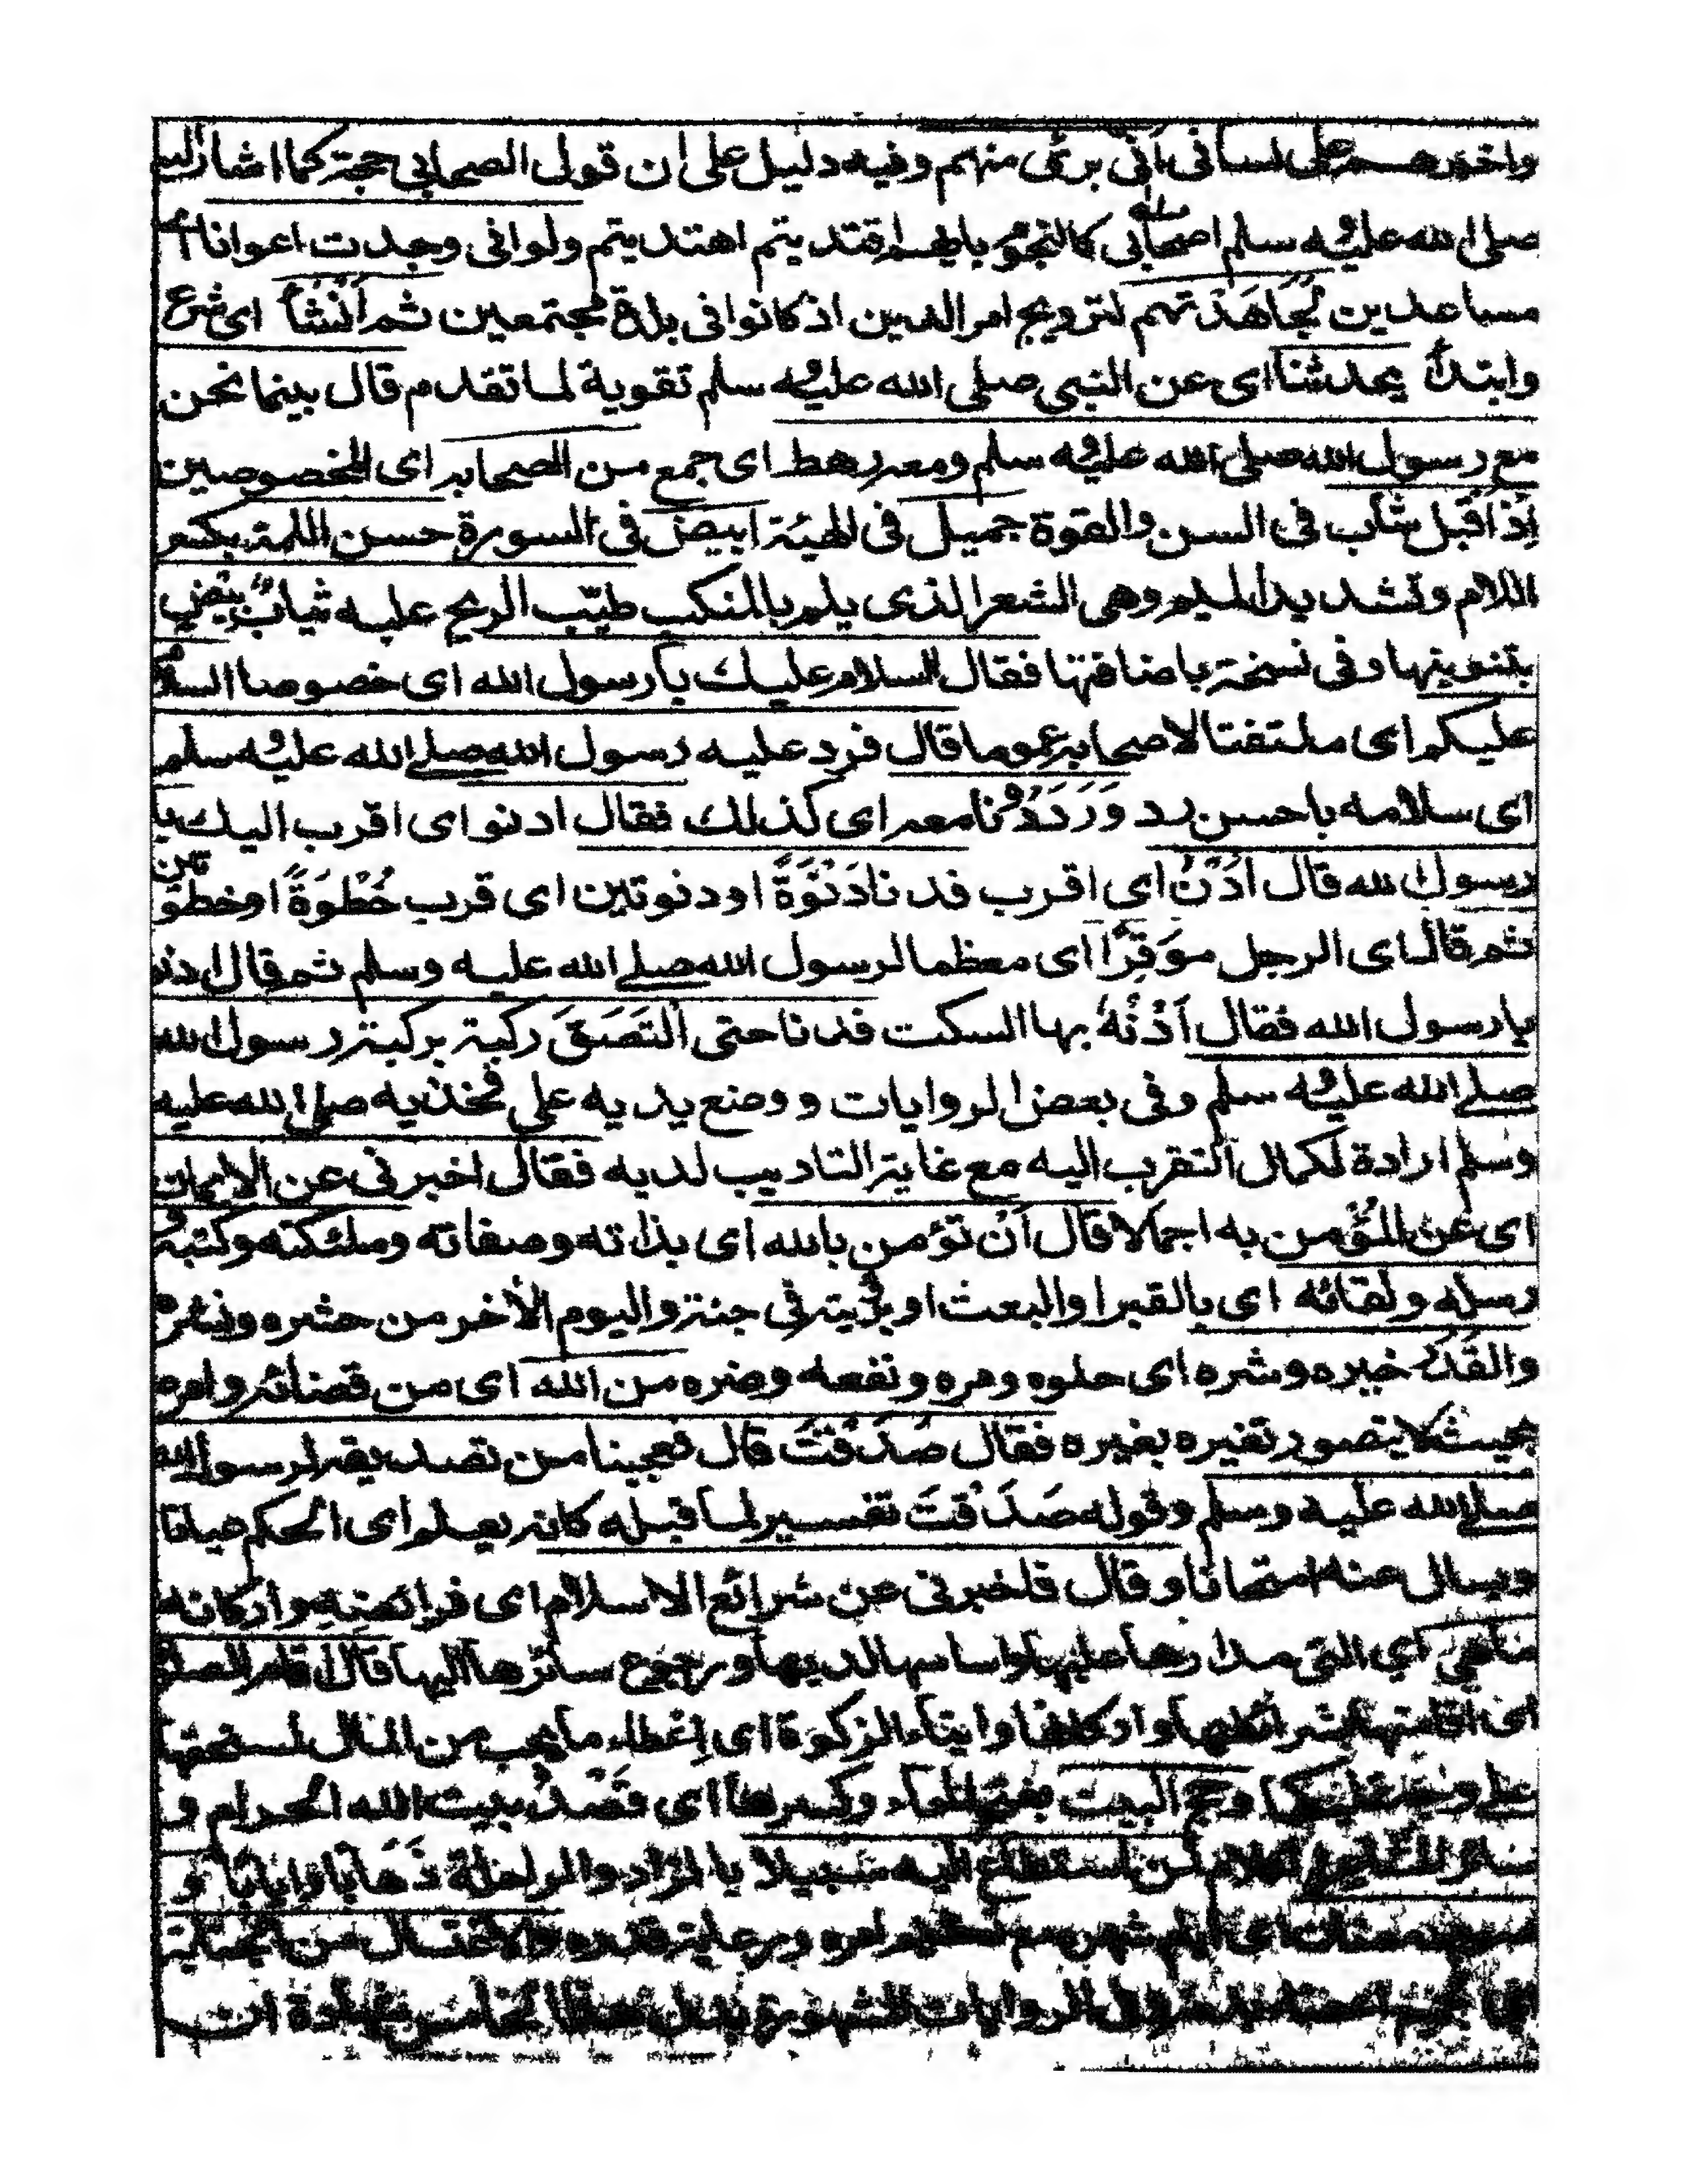 واخبرهم على لساني أني برئ منهم وفيه دليل على ان قول الصحابي حجة كما اشار اليه
صلى الله عليه وسلم اصحابي كالنجوم بايهم اقتديتم اهتديتم ولو اني وجدت اعوانا أى
مساعدين لجاهدتهم لترويج امر الدين اذ كانوا في بلدة مجتمعين ثم أنشأ اى شرع
وابتدأ يحدثنا اى عن النبي صلى الله عليه وسلم تقوية لما تقدم قال بينما نحن
مع رسول الله صلى الله عليه وسلم ومعه رهط اى جمع من الصحابه اى المخصوصين
إذ أقبل شاب في السن والقوة جميل في الهيئة ابيض في السورة حسن اللمة بكسر
اللام وتشديد الميم وهى الشعر الذى يلم بالمنكب طيّب الريح عليه ثيابٌ بيض
بتنوينها وفى نسخة باضافتها فقال السلام عليك يا رسول الله اى خصوصا السلام
عليكم اى ملتفتا لاصحابه عموما قال فرد عليه رسول الله صلى الله عليه وسلم
اى سلامه باحسن رد وَرَدَدْنا معه اى كذلك فقال ادنو اى اقرب اليك يا
رسول الله قال اُدْنُ اى اقرب فدنا دَنْوَةً او دنوتين اى قرب خُطْوَةً او خطوتين
ثم قال اى الرجل موَقِرًا اى معظما لرسول الله صلى الله عليه وسلم ثم قال ادنو
يا رسول الله فقال اُدْنُهْ بها السكت فدنا حتى التَصَقَ ركبة بركبة رسول الله
صلى الله عليه وسلم وفى بعض الروايات ووضع يديه على فخذيه صلى الله عليه
وسلم ارادة لكمال التقرب اليه مع غاية التاديب لديه فقال اخبرنى عن الايمان
اى عن المؤمن به اجمالا قال أن تؤمن بالله اى بذاته وصفاته وملئكته وكتبه و
رسله ولقائه اى بالقبر او البعث او برؤيته في جنة واليوم الأخر من حشره ونشره
والقَدَر خيره وشره اى حلوه ومره ونفعه وضره من الله اى من قضائه وامره
بحيث لا يتصور تغيره بغيره فقال صَدَقْتَ قال فعجبنا من تصديقه لرسول الله
صلى الله عليه وسلم وقوله صَدَقْتَ تفسير لما قبله كانه يعلم اى الحكم
ويسال عنه امتحانا وقال فاخبرنى عن شرائع الاسلام اى فرائضه واركانه
ما هى اى التى مدارها عليها واساسها لديها ورجوع سائرها اليها قال اقام الصلوة
اى اقامتها بشرائطها واركانها وايتاء الزكوة اى إعطاء ما يجب من المال لمستحقها
وحج البيت بفتح الحاء وكسرها اى قَصْدُ بيت الله الحرام و
لمن استطاع اليه سبيلا بالزاد والراحلة ذهابا وايابا و
رمضان اى ايام شهره مع قدره والاغتسال من الجنابة
الروايات المشهورة بدل هذا الخامس شهادة ان